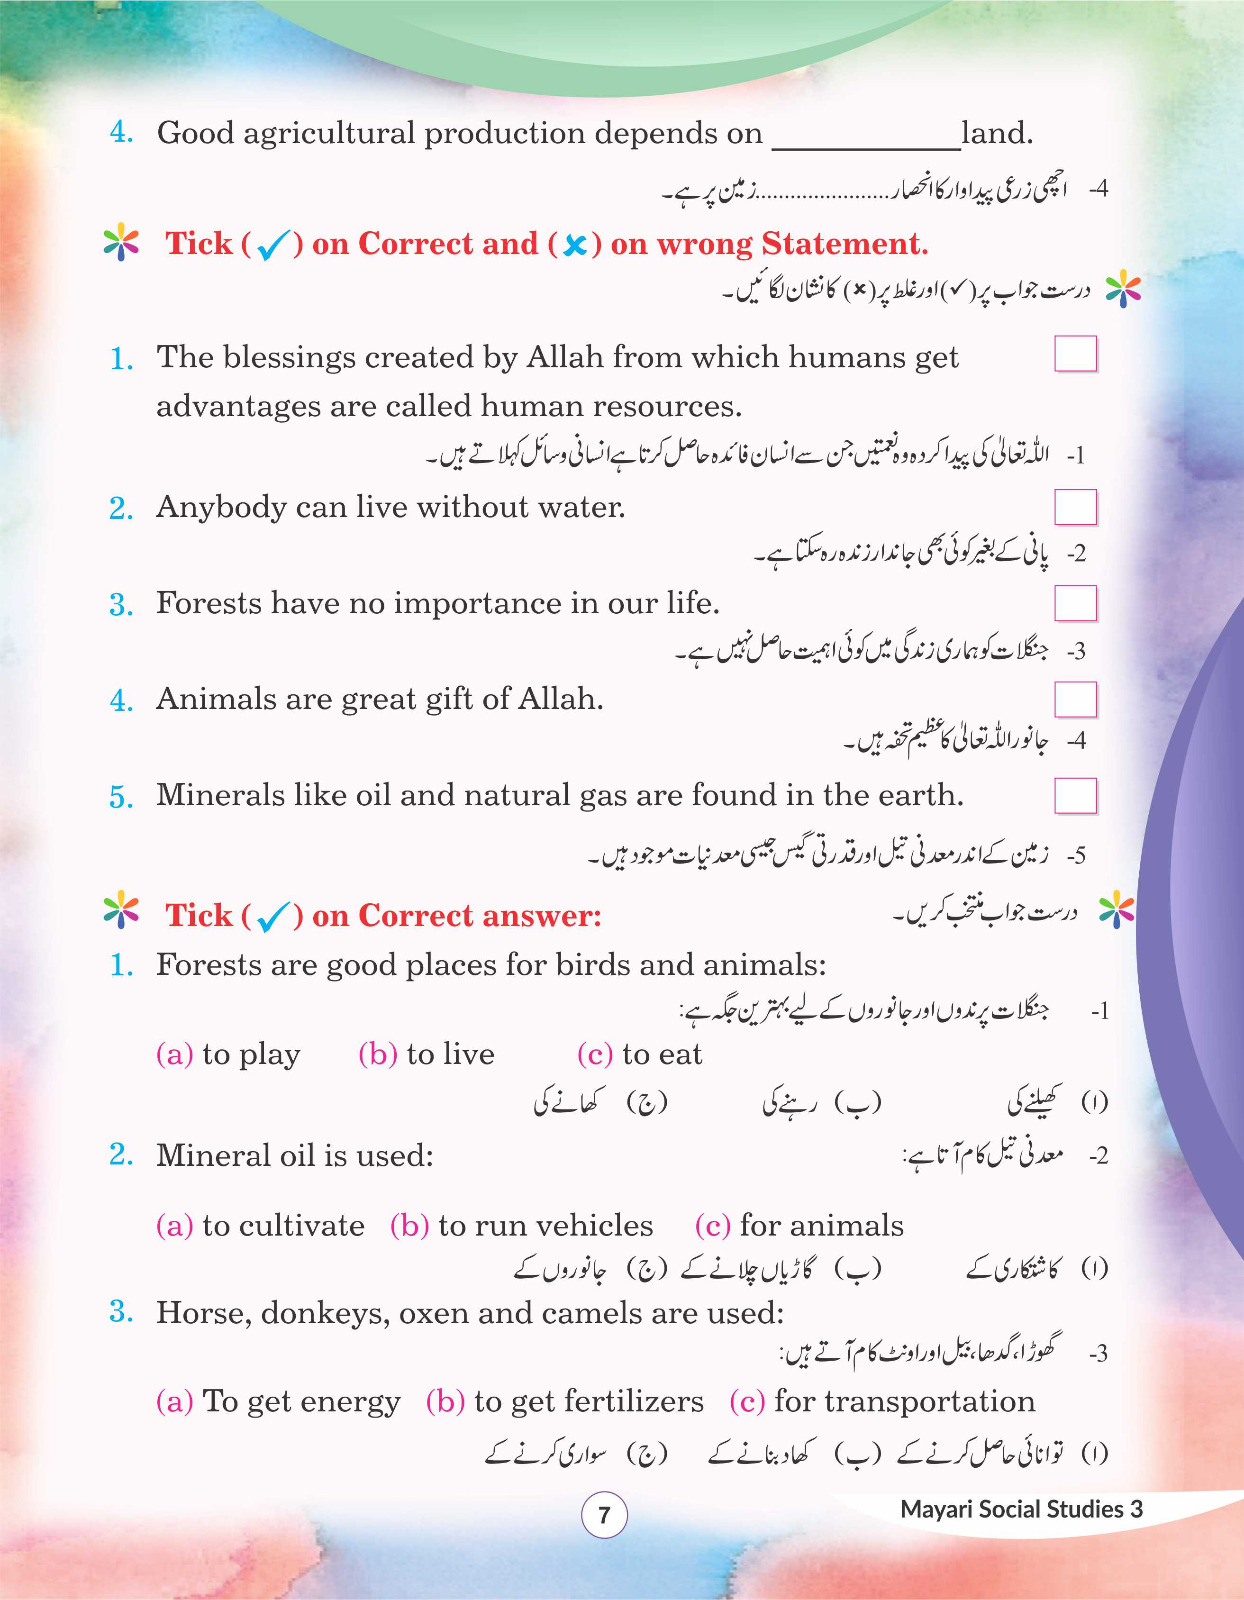 4. Good agricultural production depends on _____________land.
4- اچھی زرعی پیداوار کا انحصار.......................زمین پر ہے۔
Tick (✓) on Correct and (✗) on wrong Statement.
درست جواب پر(✓)اور غلط پر(×) کا نشان لگائیں۔
1. The blessings created by Allah from which humans get
advantages are called human resources.
1- اللہ تعالیٰ کی پیدا کردہ وہ نعمتیں جن سے انسان فائدہ حاصل کرتا ہے انسانی وسائل کہلاتے ہیں۔
2. Anybody can live without water.
2- پانی کے بغیر کوئی بھی جاندار زندہ رہ سکتا ہے۔
3. Forests have no importance in our life.
3- جنگلات کو ہماری زندگی میں کوئی اہمیت حاصل نہیں ہے۔
4. Animals are great gift of Allah.
4- جانور اللہ تعالیٰ کا عظیم تحفہ ہیں۔
5. Minerals like oil and natural gas are found in the earth.
5- زمین کے اندر معدنی تیل اور قدرتی گیس جیسی معدنیات موجود ہیں۔
Tick (✓) on Correct answer:
درست جواب منتخب کریں۔
1. Forests are good places for birds and animals:
1- جنگلات پرندوں اور جانوروں کے لیے بہترین جگہ ہے:
(a) to play (b) to live (c) to eat
(ا) کھیلنے کی (ب) رہنے کی (ج) کھانے کی
2. Mineral oil is used:
2- معدنی تیل کام آتا ہے:
(a) to cultivate (b) to run vehicles (c) for animals
(ا) کاشتکاری کے (ب) گاڑیاں چلانے کے (ج) جانوروں کے
3. Horse, donkeys, oxen and camels are used:
3- گھوڑا، گدھا، بیل اور اونٹ کام آتے ہیں:
(a) To get energy (b) to get fertilizers (c) for transportation
(ا) توانائی حاصل کرنے کے (ب) کھاد بنانے کے (ج) سواری کرنے کے
7
Mayari Social Studies 3